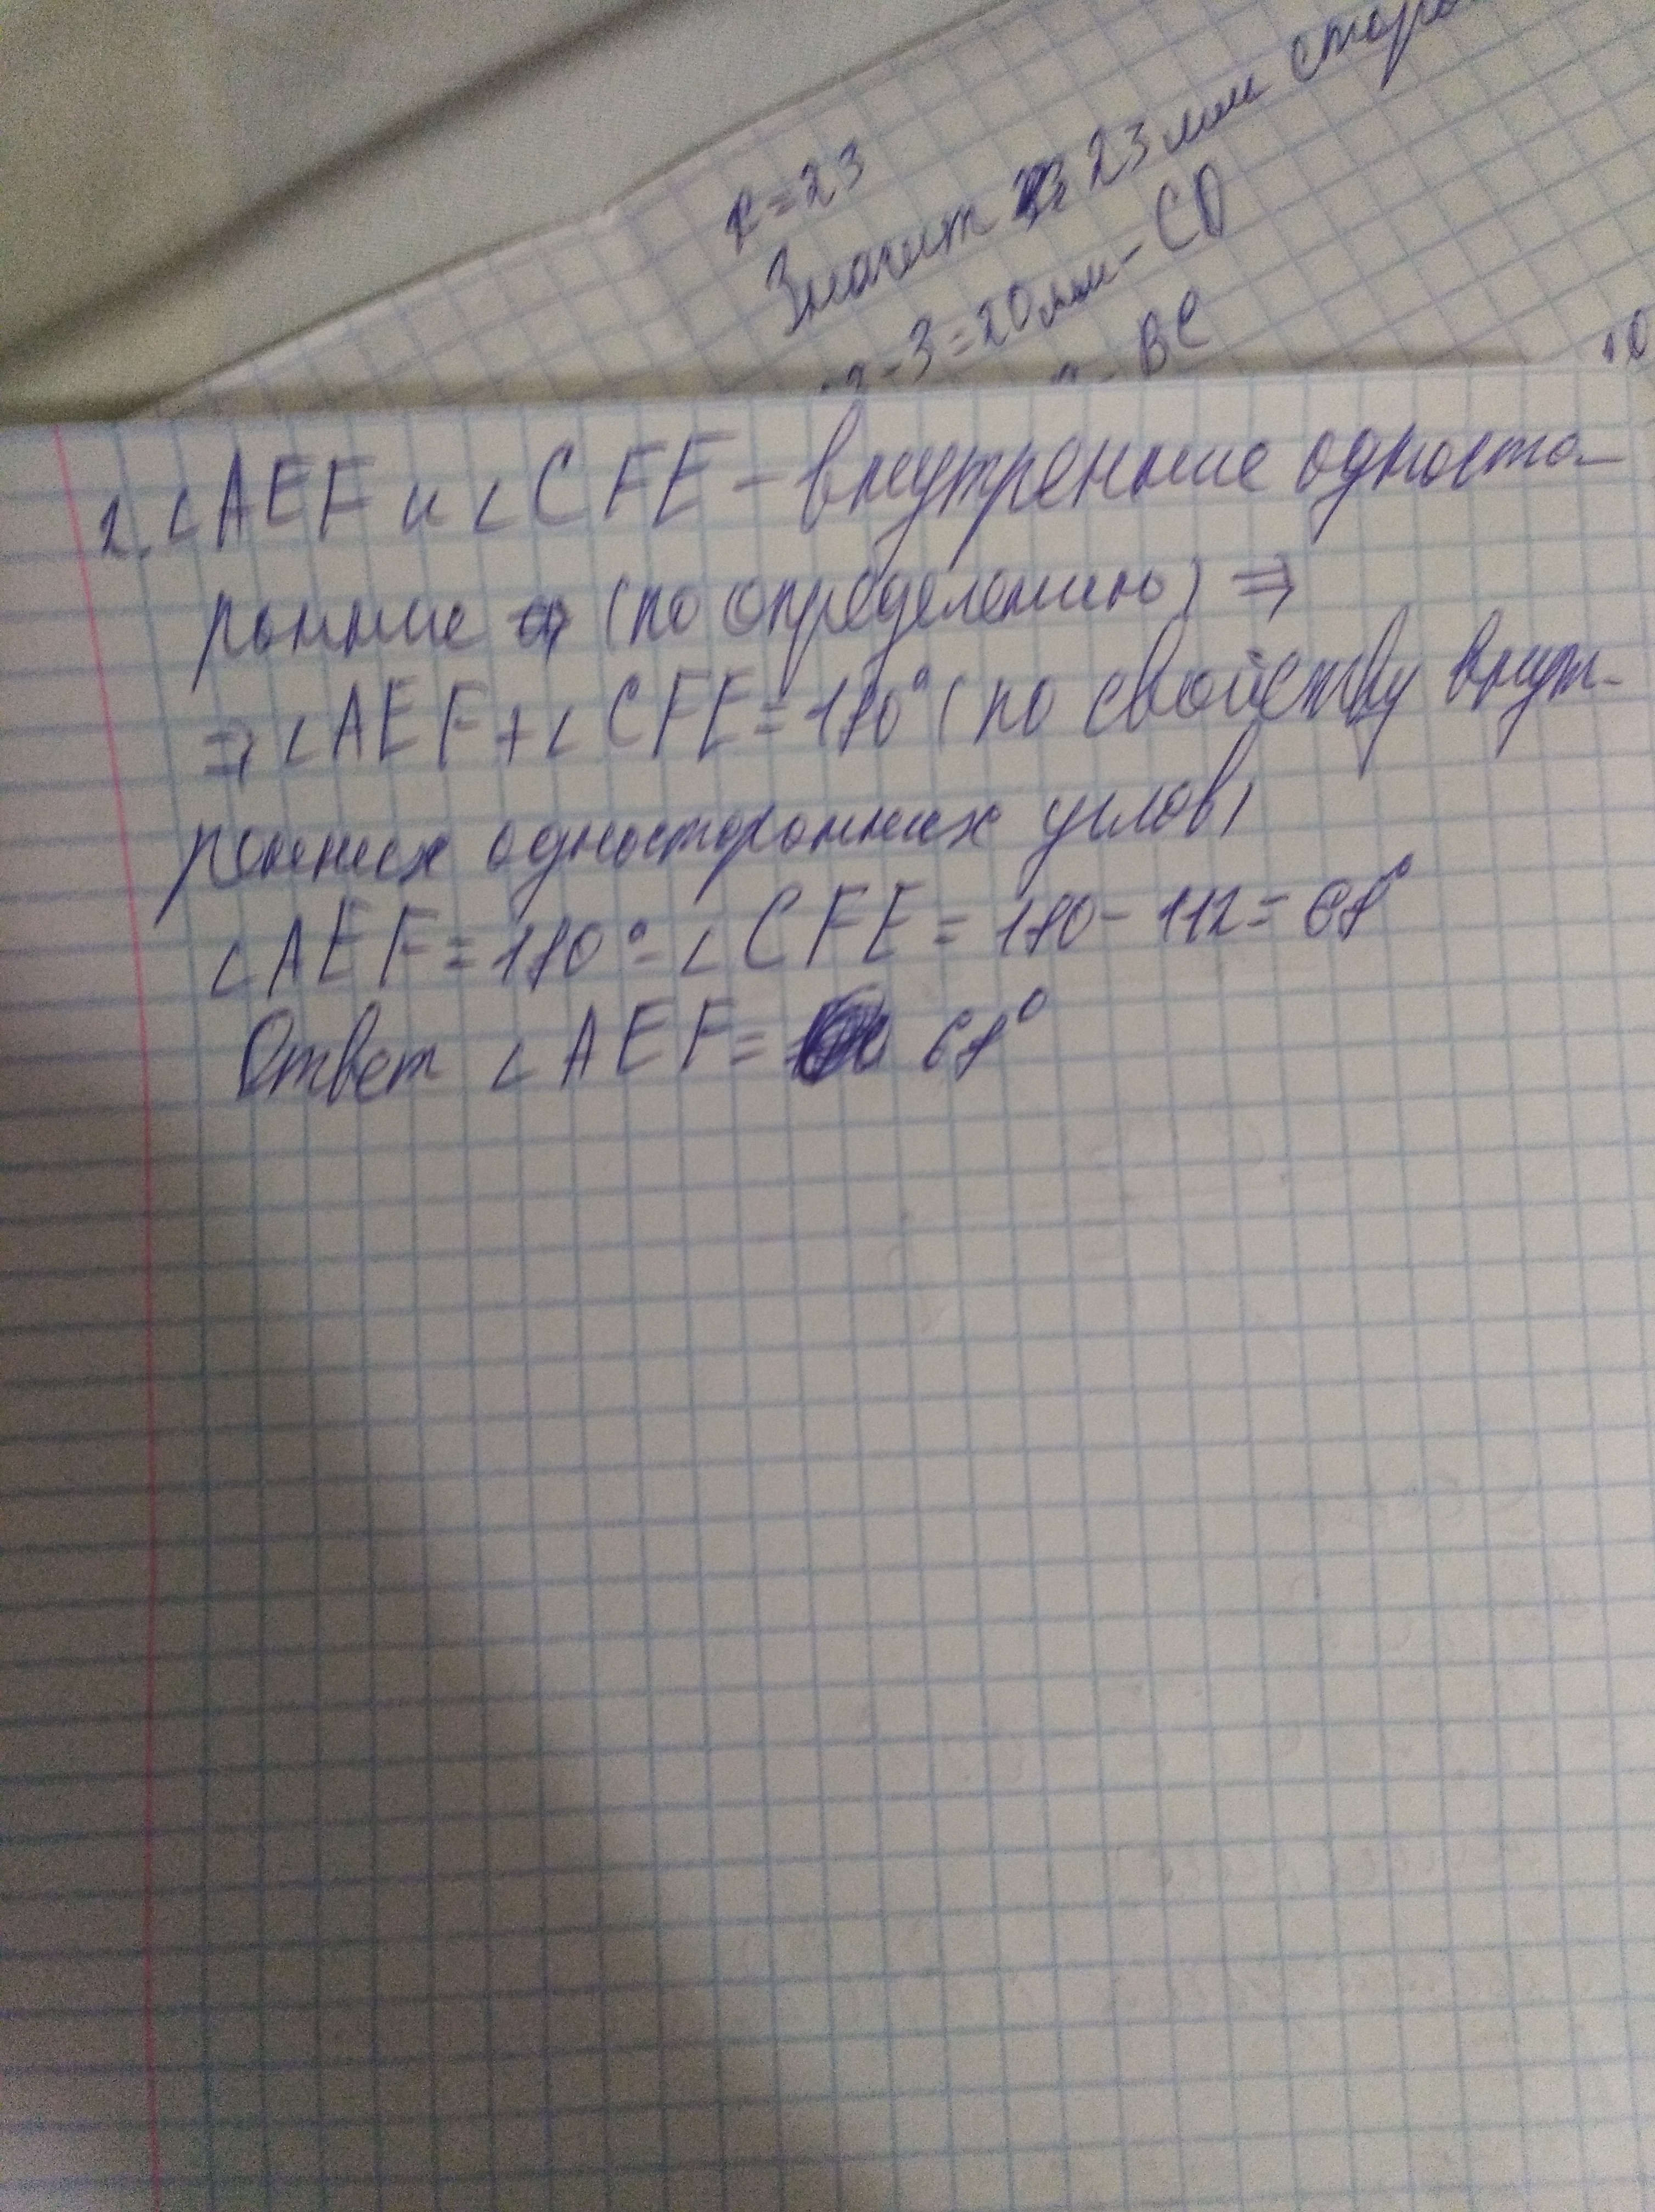 x=23
Значит 23 мм сторо
-3=20мм-CD
- BC
2. ∠AEF и ∠CFE – внутренние одностo-
ронние (по определению) ⇒
⇒ ∠AEF+∠CFE=180° (по свойству внут-
ренних односторонних углов)
∠AEF=180°-∠CFE=180-112=68°
Ответ ∠AEF= 68°